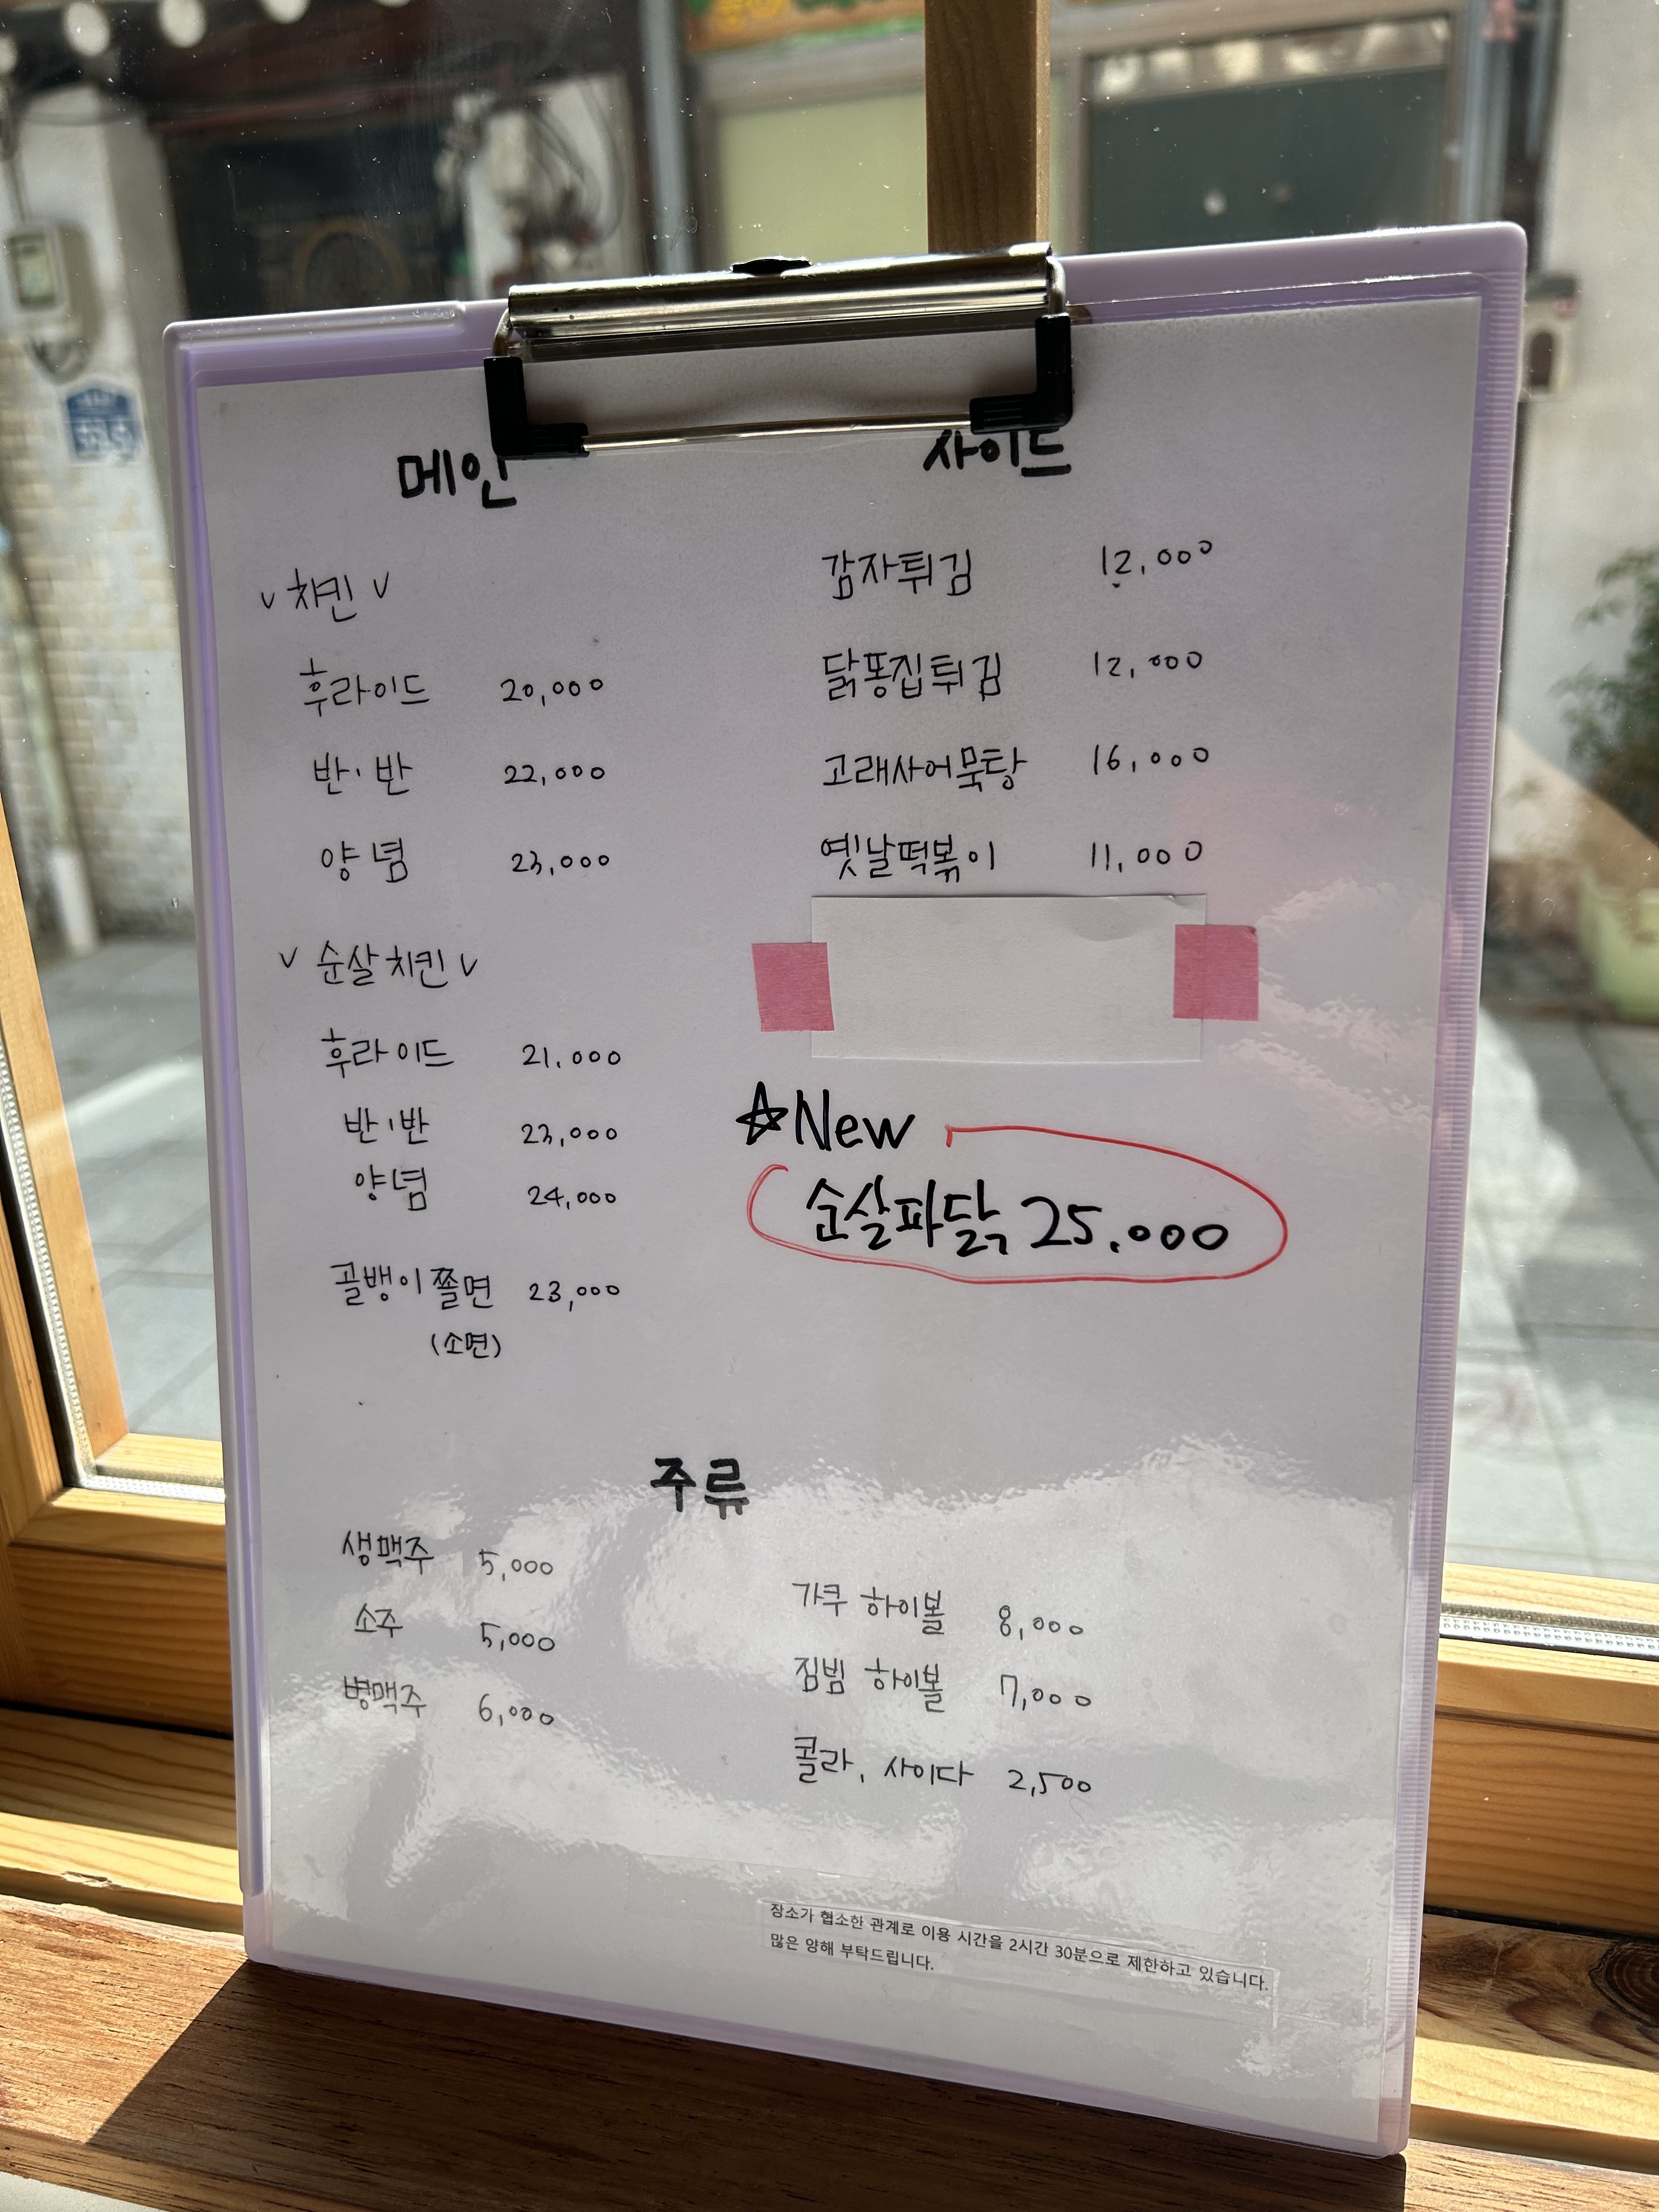 메인
∨ 치킨 ∨
후라이드 20,000
반·반 22,000
양념 23,000
∨ 순살 치킨 ∨
후라이드 21.000
반·반 23,000
양념 24,000
골뱅이 쫄면 23,000
(소면)
사이드
감자튀김 12,000
닭똥집튀김 12,000
고래사어묵탕 16,000
옛날떡볶이 11,000
☆New
순살파닭 25.000
주류
생맥주 5,000
소주 5,000
병맥주 6,000
가쿠 하이볼 8,000
짐빔 하이볼 7,000
콜라, 사이다 2,500
장소가 협소한 관계로 이용 시간을 2시간 30분으로 제한하고 있습니다.
많은 양해 부탁드립니다.